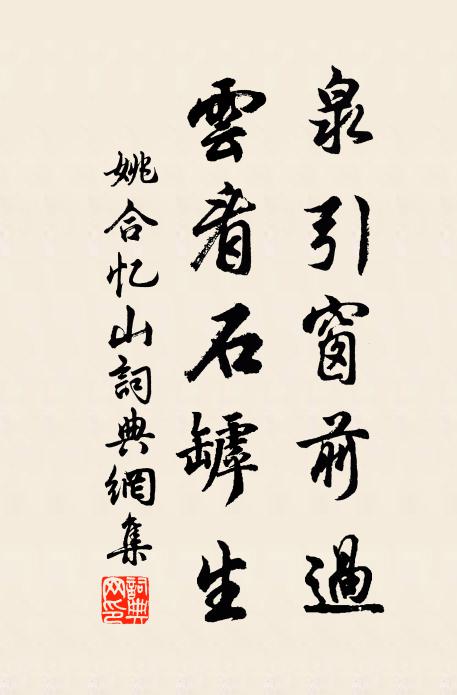 泉引窗前過
雲看石罅生
姚合忆山詞典網集
詞典網印